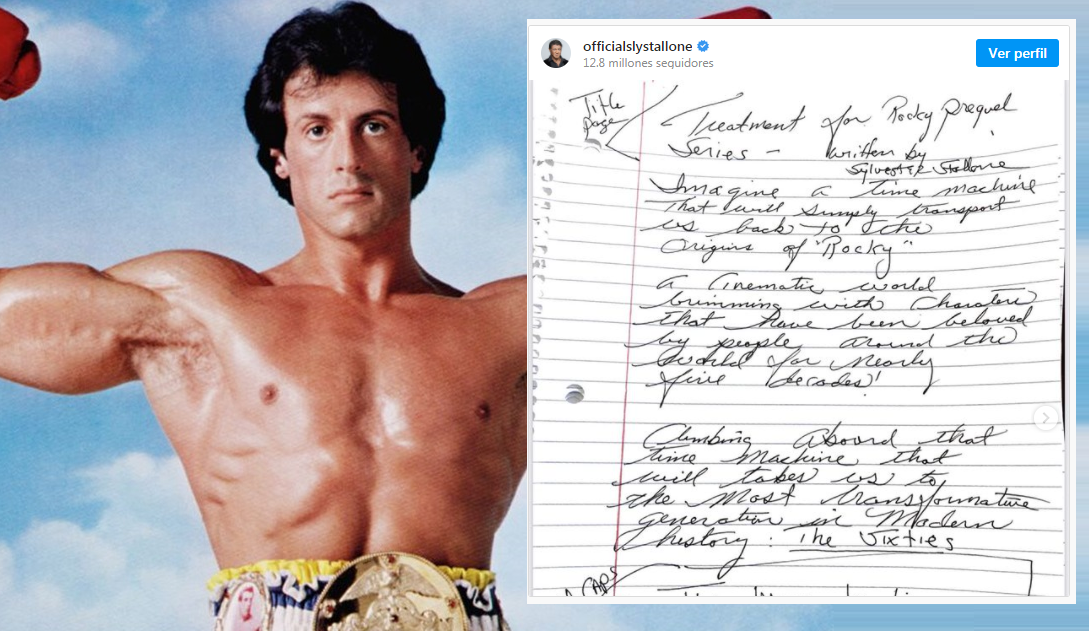 officialslystallone
12.8 millones seguidores
Ver perfil
Title
page
Treatment for Rocky prequel
Series - written by
Sylvester Stallone
Imagine a time machine
That will simply transport
us back to the
Origins of "Rocky"
A Cinematic world
brimming with Charaters
that have been beloved
by people around the
World for nearly
five decades!
Climbing Aboard that
time Machine that
will takes us to
the Most transformative
generation in Modern
history: The Sixties
CAPS